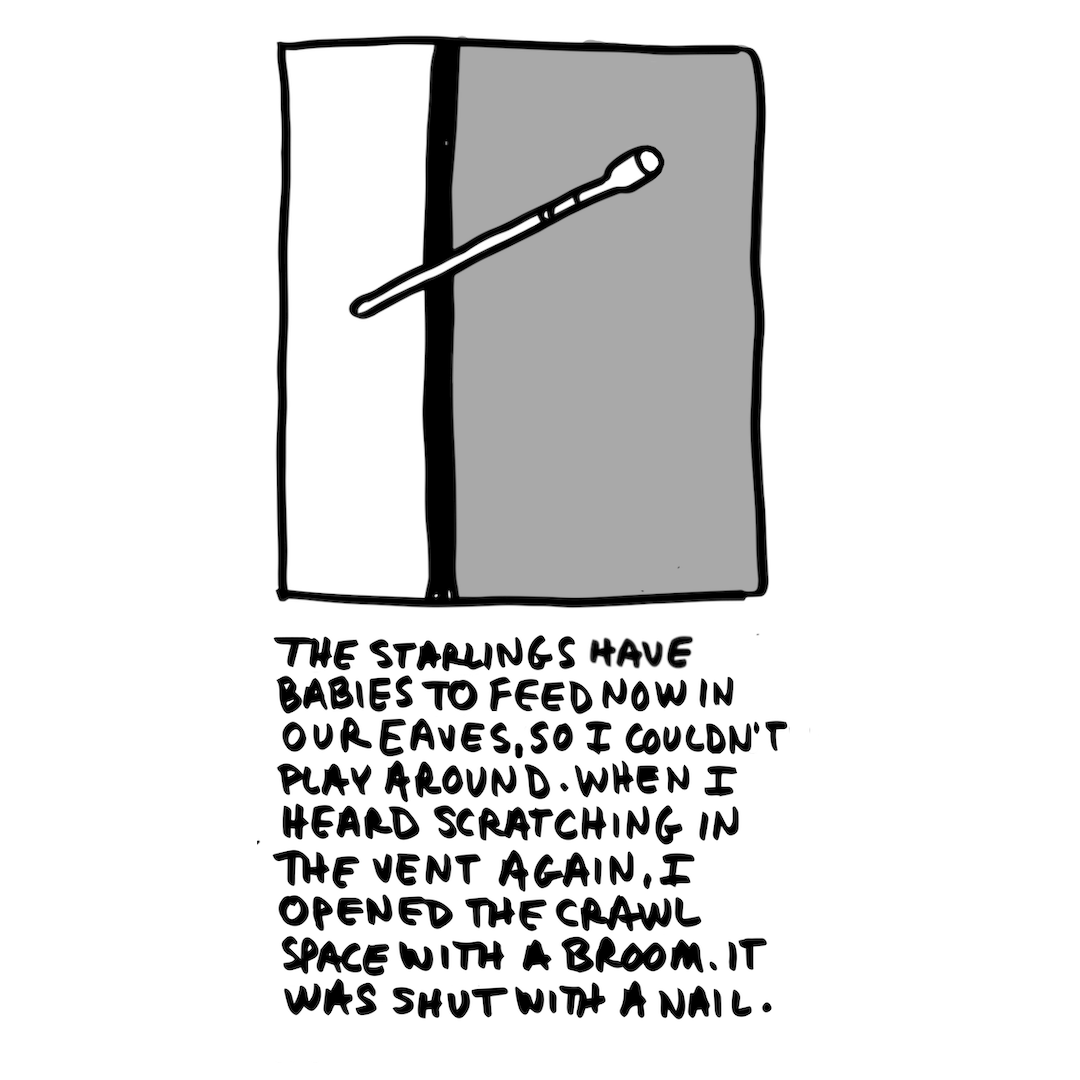 THE STARLINGS HAVE
BABIES TO FEED NOW IN
OUR EAVES, SO I COULDN'T
PLAY AROUND. WHEN I
HEARD SCRATCHING IN
THE VENT AGAIN, I
OPENED THE CRAWL
SPACE WITH A BROOM. IT
WAS SHUT WITH A NAIL.